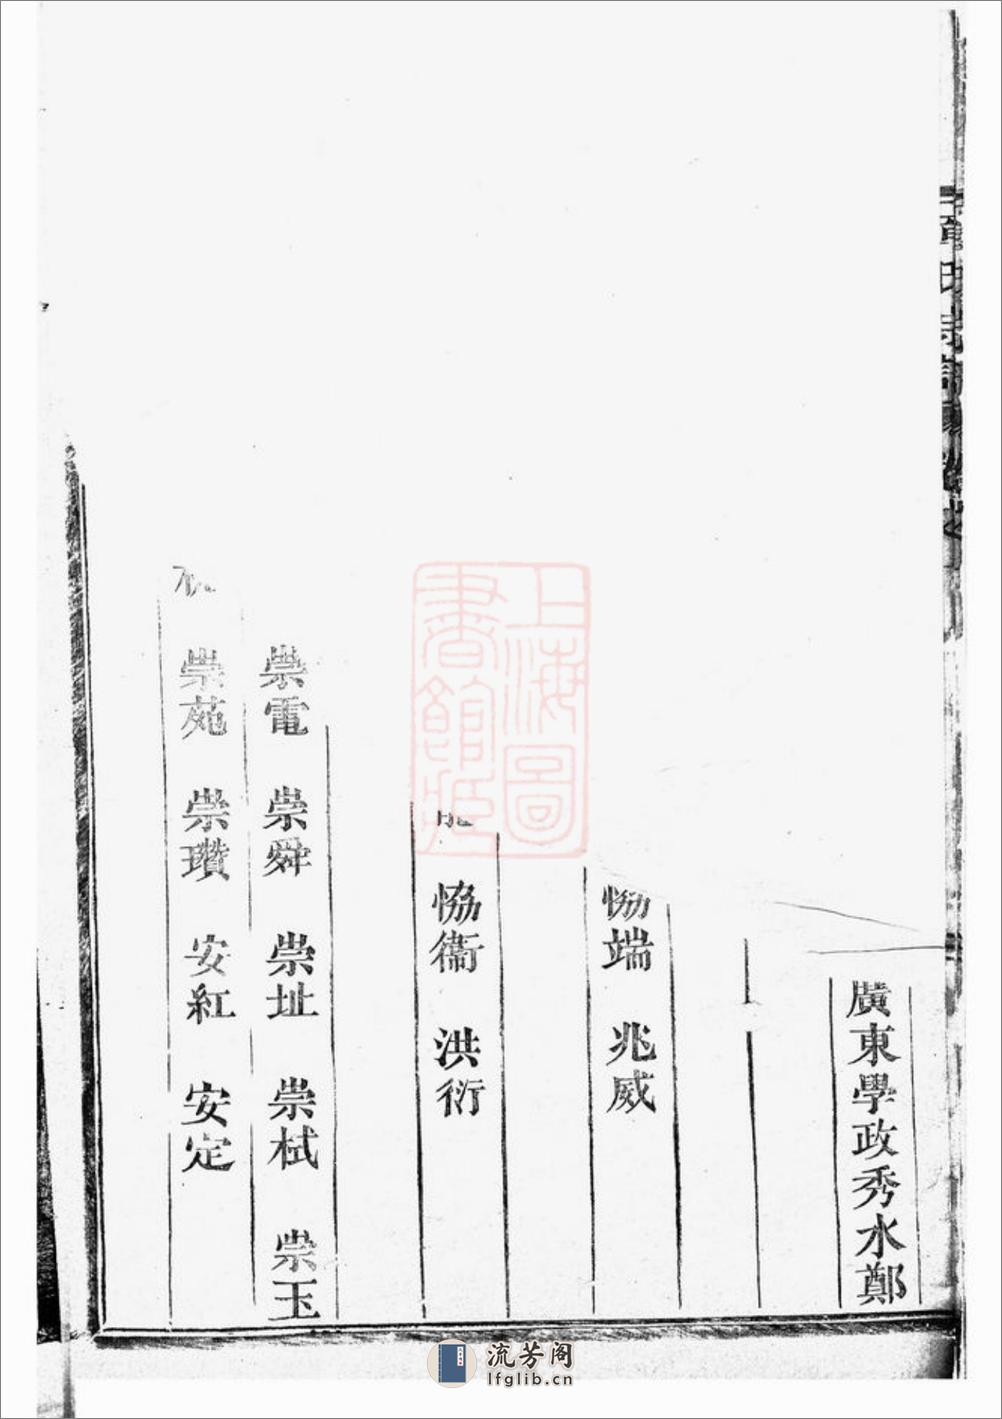 廣東學政秀水鄭
恊端 兆威
恊衞 洪衍
崇電 崇舜 崇址 崇栻 崇玉
崇苑 崇瓚 安紅 安定
上海圖
書館藏
流芳阁
lfglib.cn